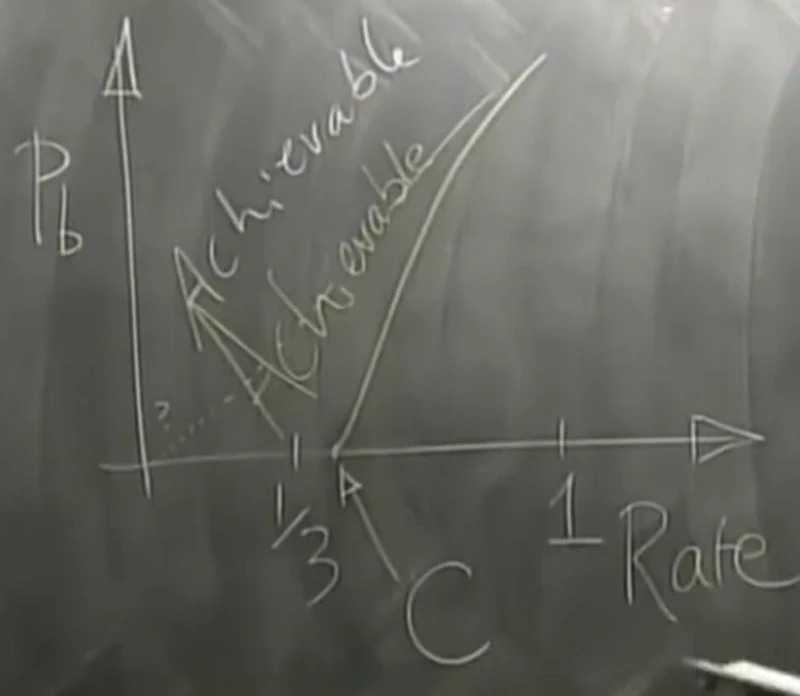 P_b
Achievable
Achievable
?
1/3
1
Rate
C